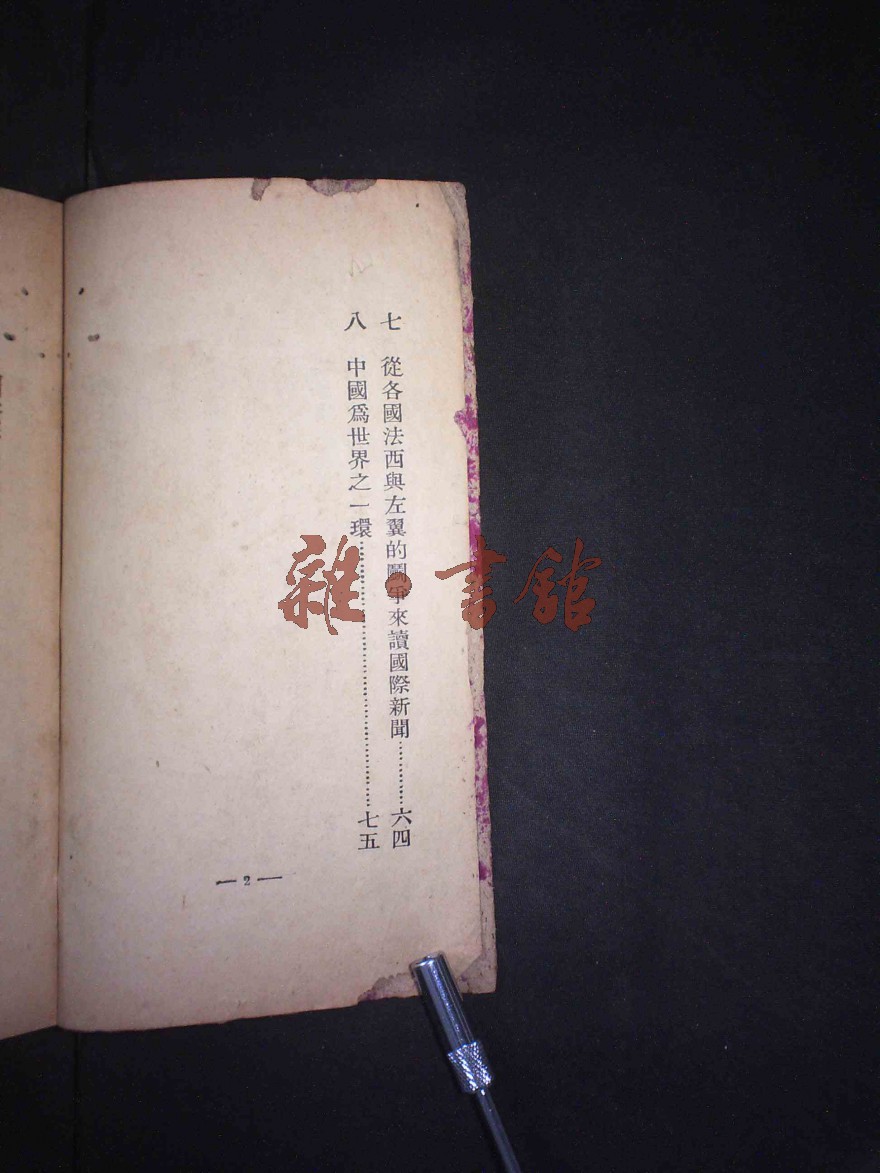 七 從各國法西與左翼的鬭爭來讀國際新聞…………六四
八 中國爲世界之一環…………………………………七五
— 2 —
雜·書館